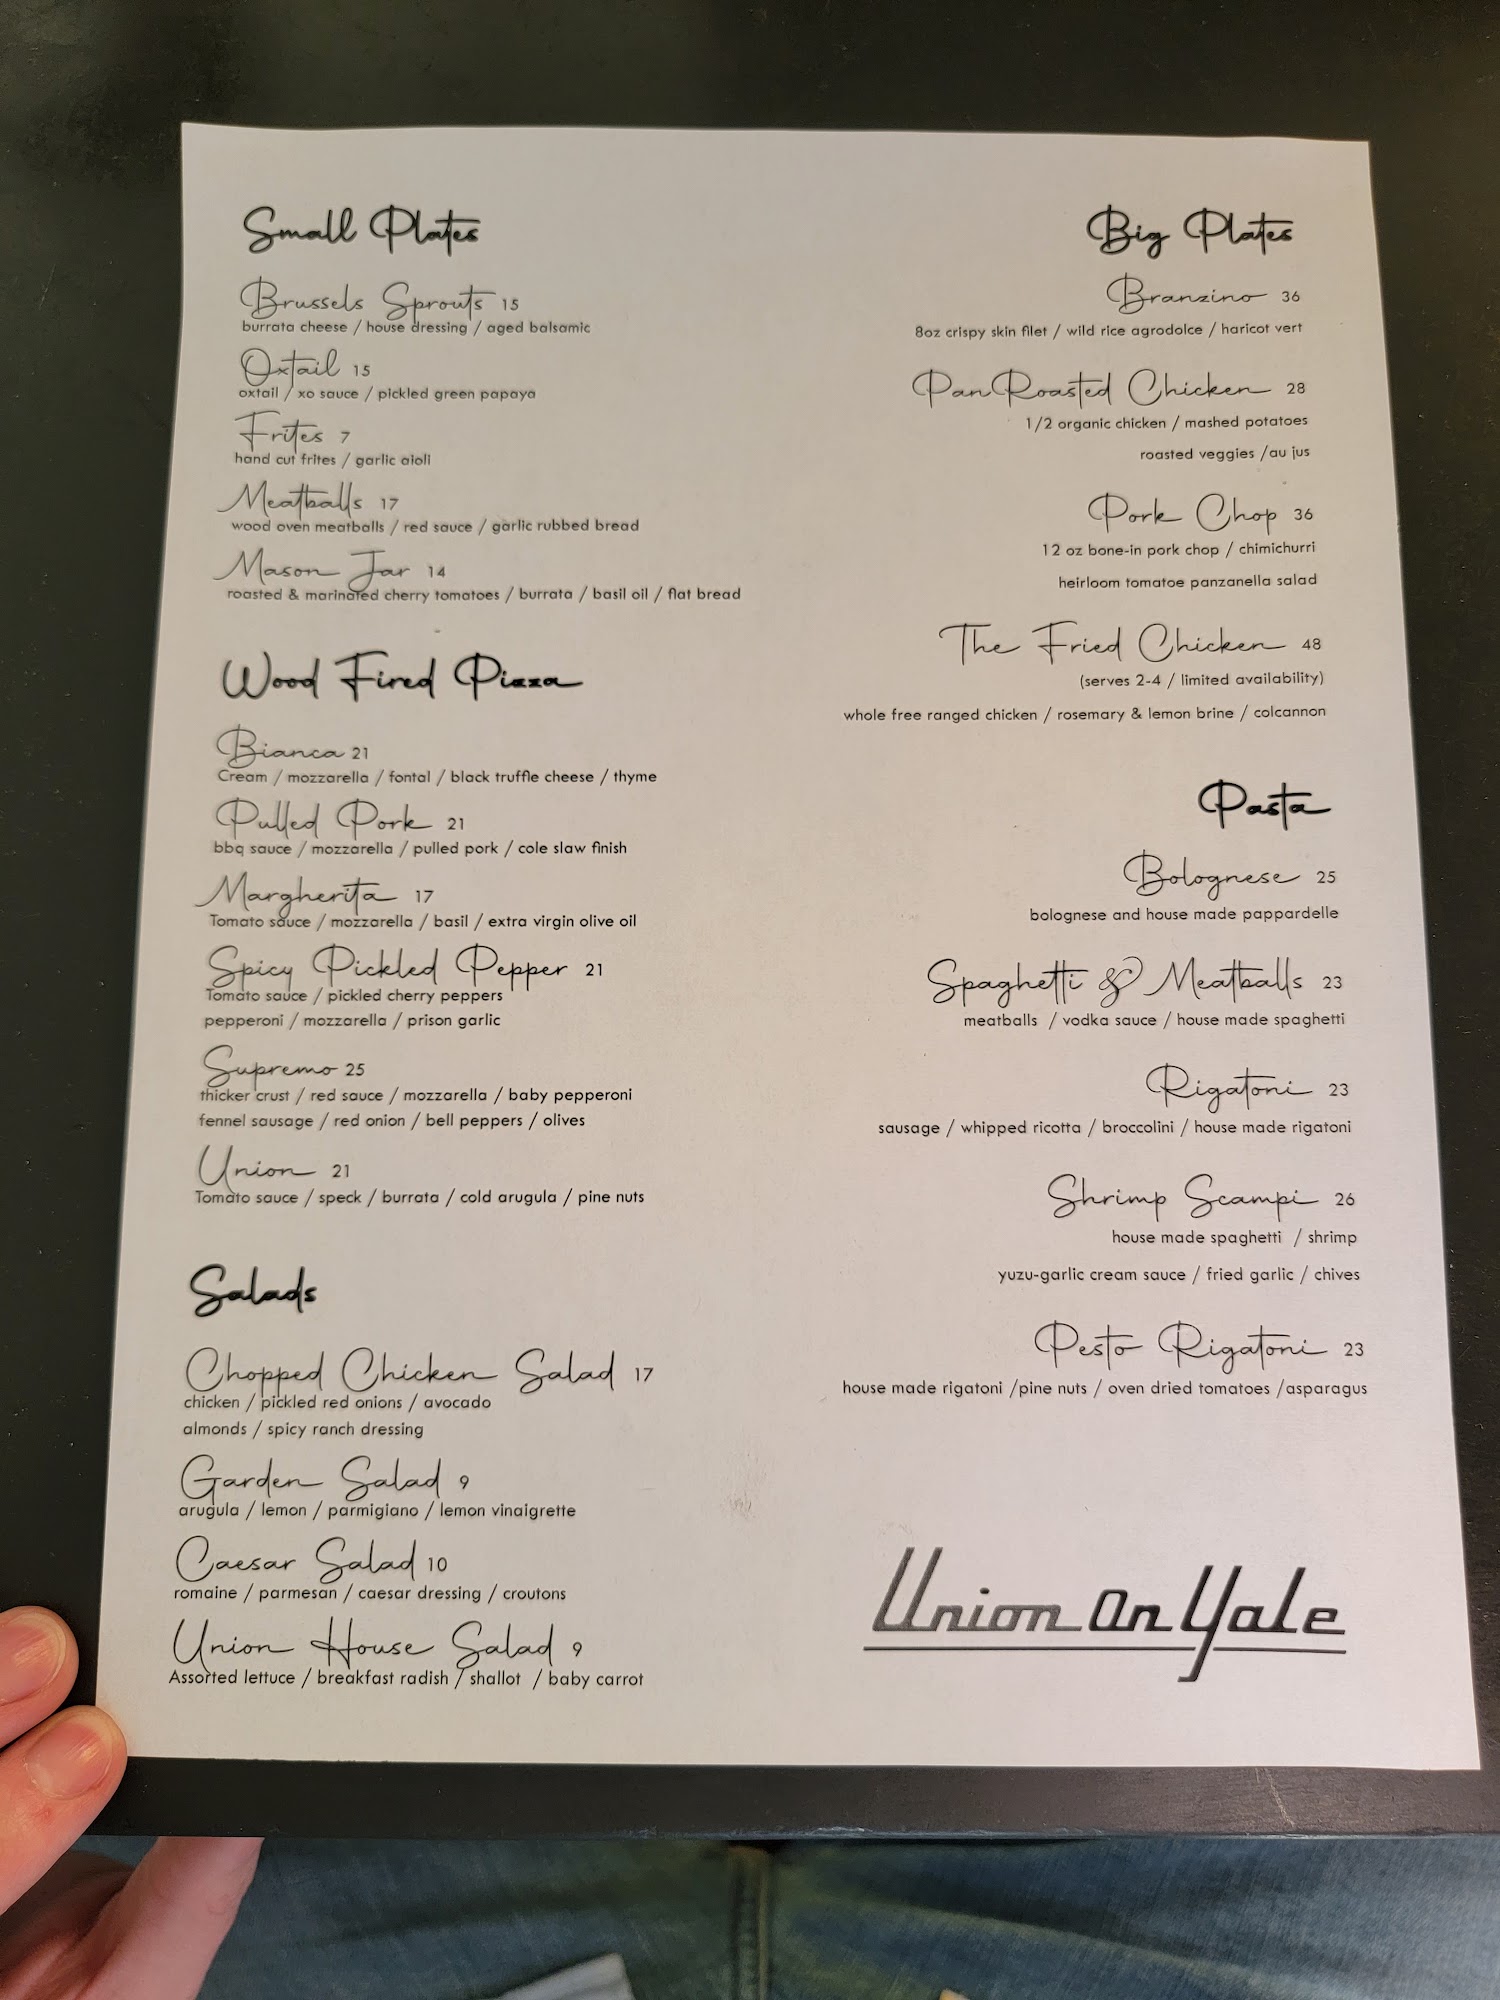 Small Plates
Brussels Sprouts 15
burrata cheese / house dressing / aged balsamic
Oxtail 15
oxtail / xo sauce / pickled green papaya
Frites 7
hand cut frites / garlic aioli
Meatballs 17
wood oven meatballs / red sauce / garlic rubbed bread
Mason Jar 14
roasted & marinated cherry tomatoes / burrata / basil oil / flat bread
Wood Fired Pizza
Bianca 21
Cream / mozzarella / fontal / black truffle cheese / thyme
Pulled Pork 21
bbq sauce / mozzarella / pulled pork / cole slaw finish
Margherita 17
Tomato sauce / mozzarella / basil / extra virgin olive oil
Spicy Pickled Pepper 21
Tomato sauce / pickled cherry peppers
pepperoni / mozzarella / prison garlic
Supremo 25
thicker crust / red sauce / mozzarella / baby pepperoni
fennel sausage / red onion / bell peppers / olives
Union 21
Tomato sauce / speck / burrata / cold arugula / pine nuts
Salads
Chopped Chicken Salad 17
chicken / pickled red onions / avocado
almonds / spicy ranch dressing
Garden Salad 9
arugula / lemon / parmigiano / lemon vinaigrette
Caesar Salad 10
romaine / parmesan / caesar dressing / croutons
Union House Salad 9
Assorted lettuce / breakfast radish / shallot / baby carrot
Big Plates
Branzino 36
8oz crispy skin filet / wild rice agrodolce / haricot vert
Pan Roasted Chicken 28
1/2 organic chicken / mashed potatoes
roasted veggies /au jus
Pork Chop 36
12 oz bone-in pork chop / chimichurri
heirloom tomatoe panzanella salad
The Fried Chicken 48
(serves 2-4 / limited availability)
whole free ranged chicken / rosemary & lemon brine / colcannon
Pasta
Bolognese 25
bolognese and house made pappardelle
Spaghetti & Meatballs 23
meatballs / vodka sauce / house made spaghetti
Rigatoni 23
sausage / whipped ricotta / broccolini / house made rigatoni
Shrimp Scampi 26
house made spaghetti / shrimp
yuzu-garlic cream sauce / fried garlic / chives
Pesto Rigatoni 23
house made rigatoni /pine nuts / oven dried tomatoes /asparagus
Union On Yale